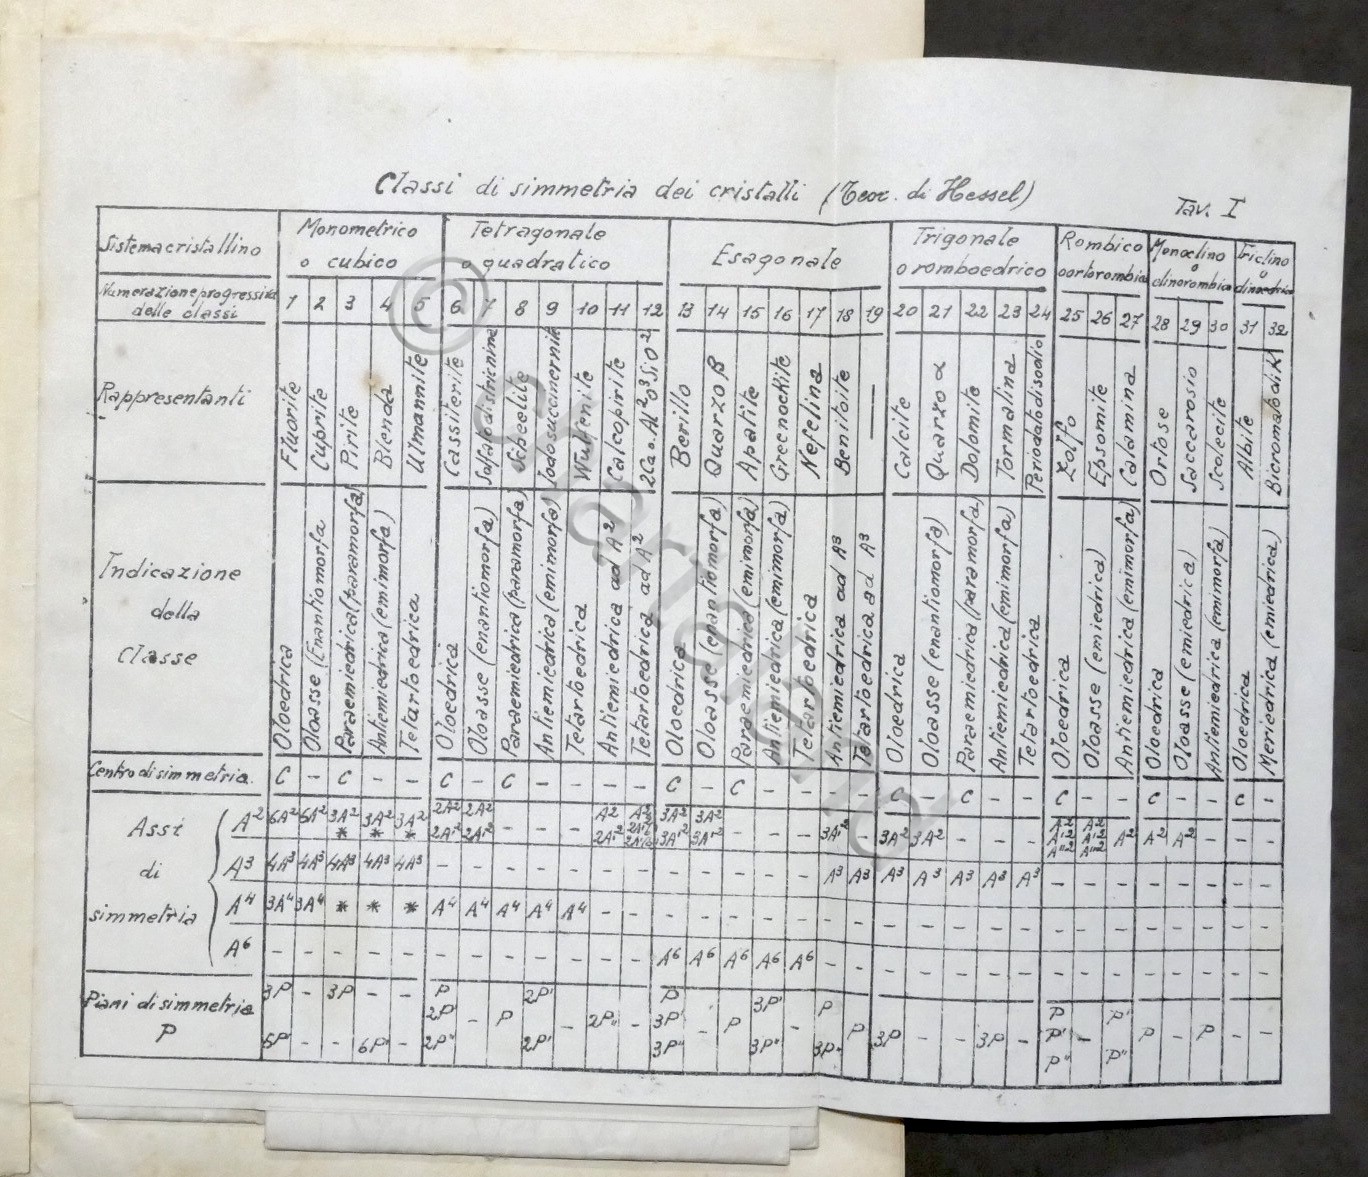 Classi di simmetria dei cristalli (Teor. di Hessel)
Tav. I
Sistema cristallino
Monometrico o cubico
Tetragonale o quadratico
Esagonale
Trigonale o romboedrico
Rombico o ortorombico
Monoclino o clinorombico
Triclino o
Numerazione progressiva delle classi
1 2 3 4 5 6 7 8 9 10 11 12 13 14 15 16 17 18 19 20 21 22 23 24 25 26 27 28 29 30 31 32
Rappresentanti
Fluorite
Cuprite
Pirite
Blenda
Ulmannite
Cassiterite
Solfato di stricnina
Scheelite
Iodosuccinernite
Wulfenite
Calcopirite
Berillo
Quarzo β
Apatite
Greenockite
Nefelina
Benitoite
—
Calcite
Quarzo α
Dolomite
Tormalina
Periodato di sodio
Zolfo
Epsomite
Calamina
Ortose
Saccarosio
Scolecite
Albite
Bicromato di K
Indicazione della Classe
Oloedrica
Oloasse (Enantiomorfa
Paraemiedrica (paramorfa)
Antiemiedrica (emimorfa)
Tetartoedrica
Oloedrica
Oloasse (enantiomorfa)
Paraemiedrica (paramorfa)
Antiemiedrica (emimorfa)
Tetartoedrica
Antiemiedrica ad A2
Tetartoedrica ad A2
Oloedrica
Oloasse (enantiomorfa)
Paraemiedrica (emimorfa)
Antiemiedrica (emimorfa)
Tetartoedrica
Antiemiedrica ad A3
Tetartoedrica ad A3
Oloedrica
Oloasse (enantiomorfa)
Paraemiedrica (paramorfa)
Antiemiedrica (emimorfa)
Tetartoedrica
Oloedrica
Oloasse (emiedrica)
Antiemiedrica (emimorfa)
Oloedrica
Oloasse (emiedrica)
Antiemiedrica (emimorfa)
Oloedrica
Meriedrica (emiedrica)
Centro di simmetria. C - C - - C - C - - - - C - C - - - - C - C - - C - - C - - C -
Assi di simmetria
A2 6A2 6A2 3A2 3A2 3A2 2A2 2A2 - - - A2 A2 3A2 3A2 - - - 3A'2 - 3A2 3A2 - - - A2 A2 A2 A2 A2 - - -
* * * 2A'2 2A'2 2A'2 3A'2 3A'2 A'2 A'2
A''2 A''2
A3 4A3 4A3 4A3 4A3 4A3 - - - - - - - - - - - - A3 A3 A3 A3 A3 A3 A3 - - - - - - - -
A4 3A4 3A4 * * * A4 A4 A4 A4 A4 - - - - - - - - - - - - - - - - - - - - - -
A6 - - - - - - - - - - - - A6 A6 A6 A6 A6 - - - - - - - - - - - - - - -
Piani di simmetria P
3P - 3P - - P 2P' P 3P' P P P'
2P' - P - 2P" - 3P' - P - P 3P - - 3P - P' P - P - -
6P - - 6P" - 2P" 2P' 3P" 3P" 3P" P" P"
© chartaland